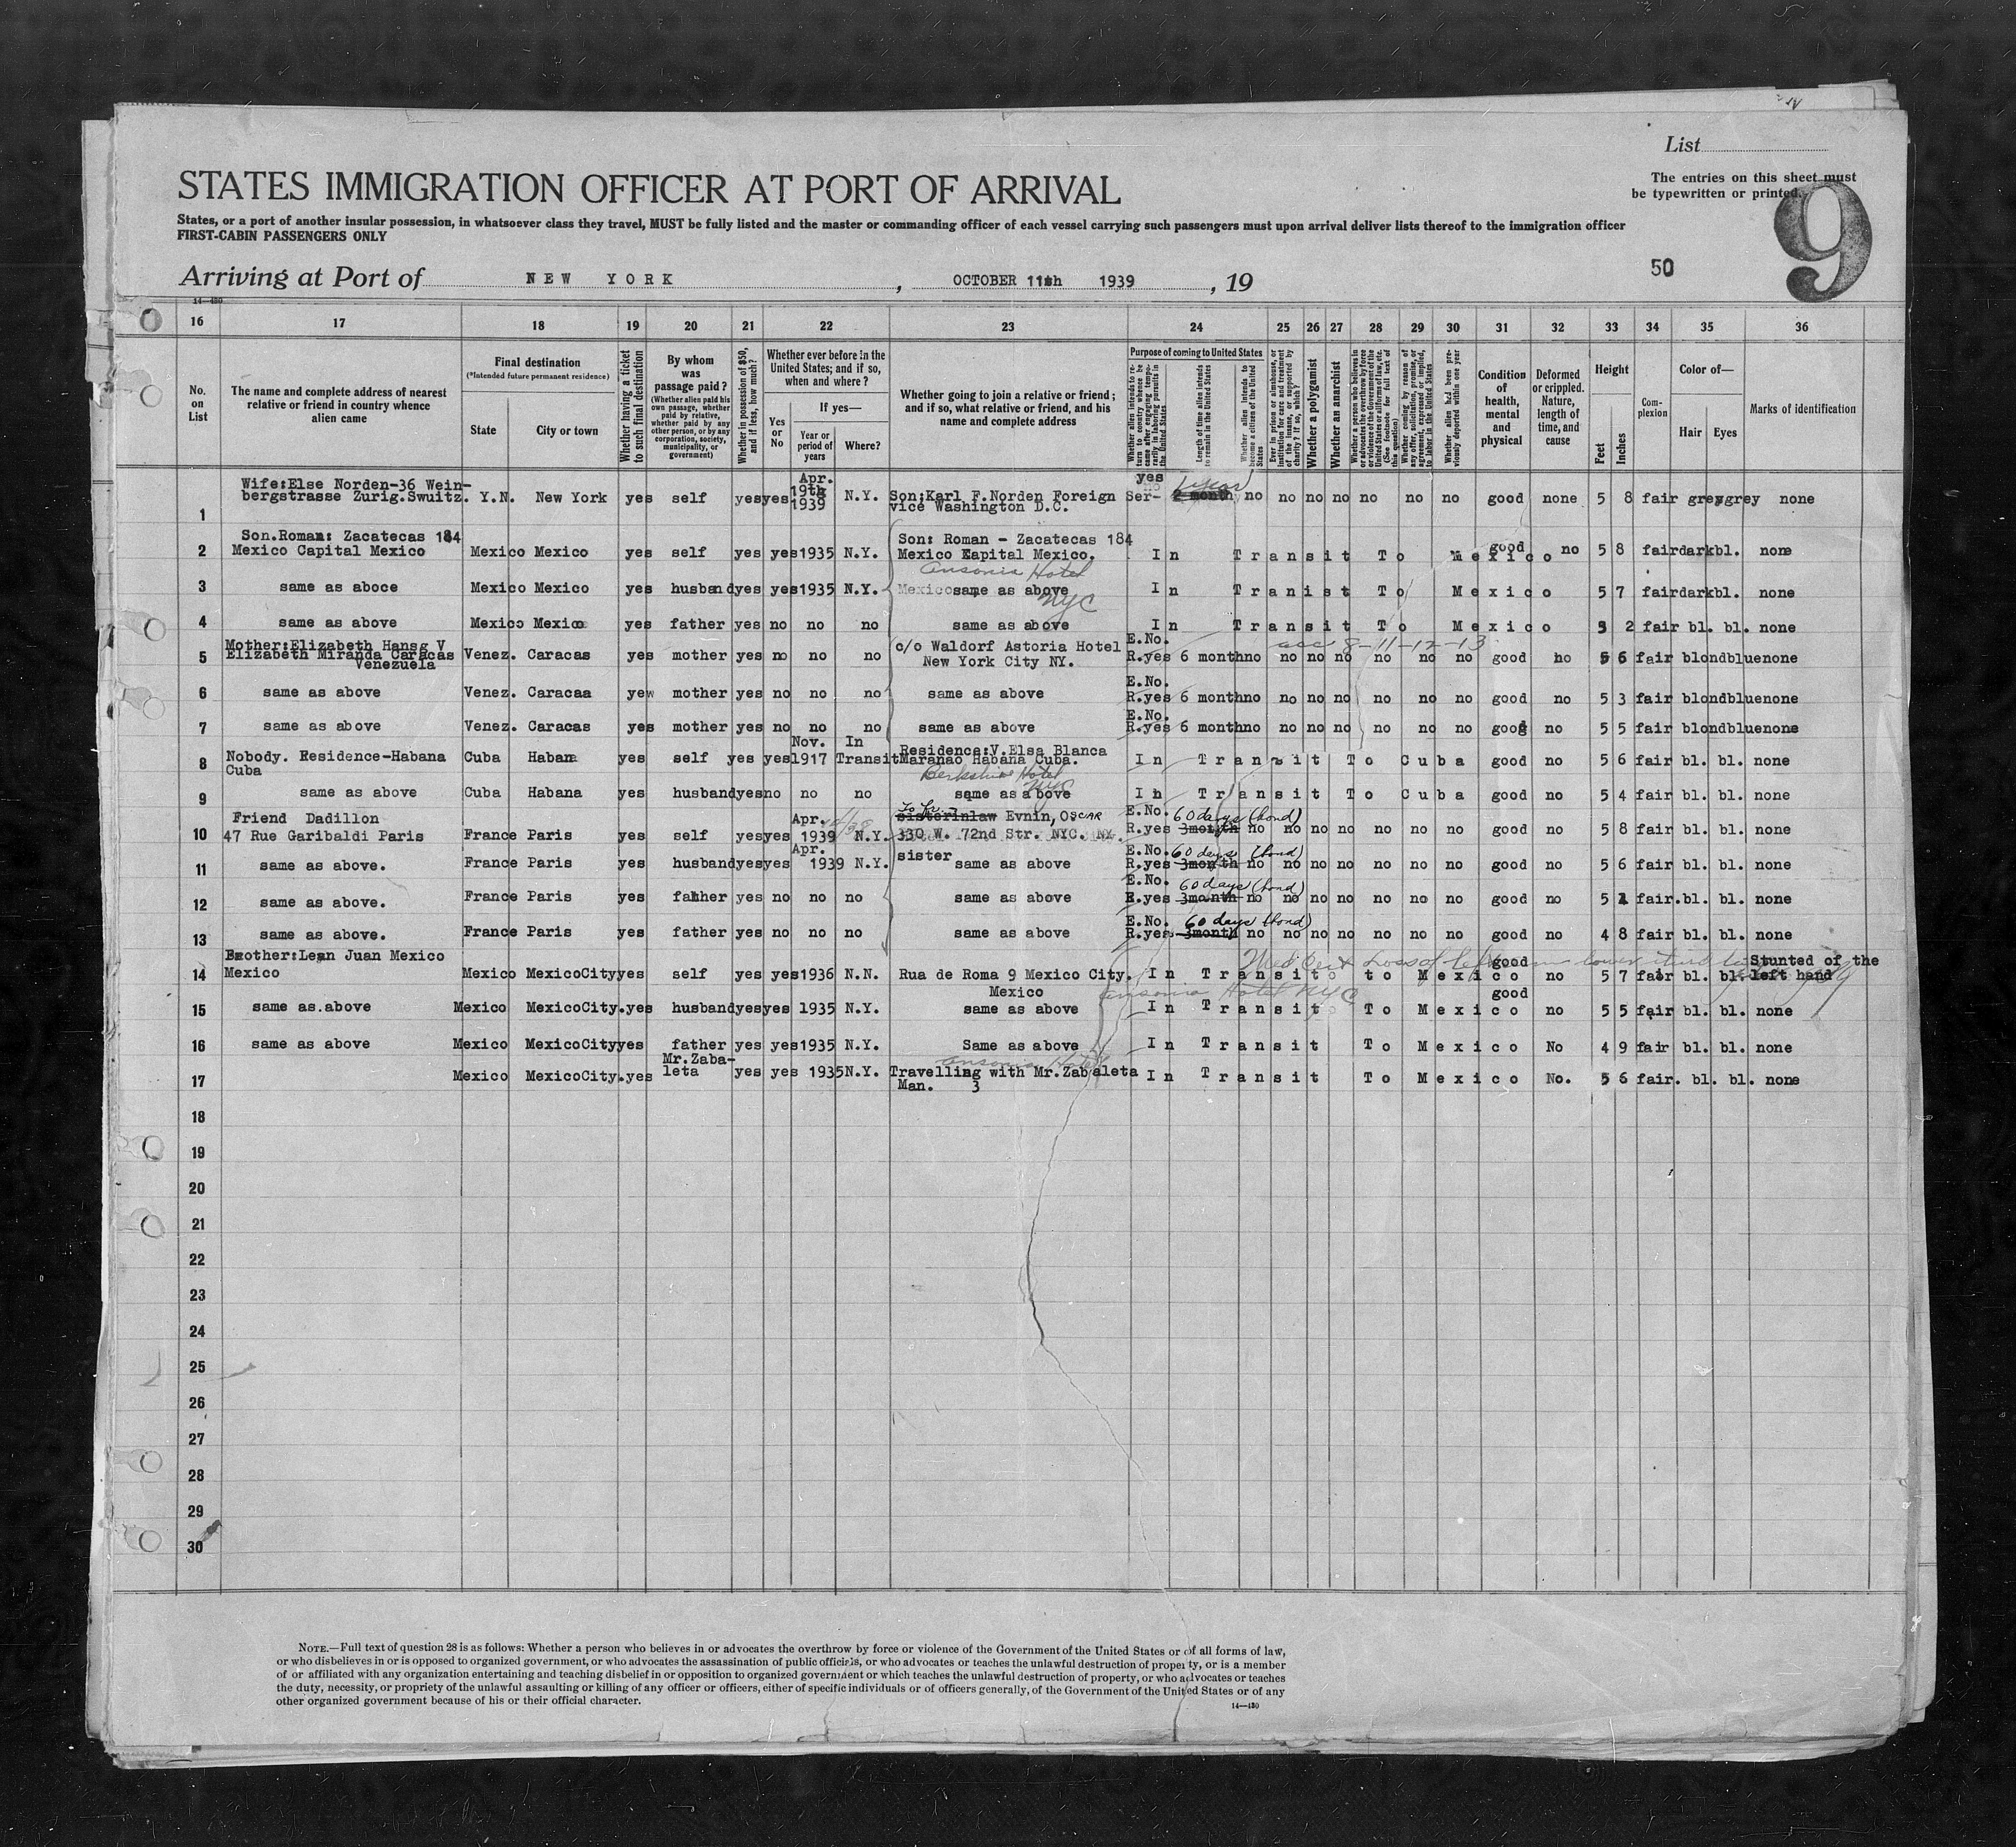 List
STATES IMMIGRATION OFFICER AT PORT OF ARRIVAL
The entries on this sheet must
be typewritten or printed.
States, or a port of another insular possession, in whatsoever class they travel, MUST be fully listed and the master or commanding officer of each vessel carrying such passengers must upon arrival deliver lists thereof to the immigration officer
FIRST-CABIN PASSENGERS ONLY
9
50
Arriving at Port of NEW YORK , OCTOBER 11th 1939 , 19
14—430
16 17 18 19 20 21 22 23 24 25 26 27 28 29 30 31 32 33 34 35 36
No. on List
The name and complete address of nearest relative or friend in country whence alien came
Final destination
(*Intended future permanent residence)
State
City or town
Whether having a ticket to such final destination
By whom was passage paid?
(Whether alien paid his own passage, whether paid by relative, whether paid by any other person, or by any corporation, society, municipality, or government)
Whether in possession of $50, and if less, how much?
Whether ever before in the United States; and if so, when and where?
Yes or No
If yes—
Year or period of years
Where?
Whether going to join a relative or friend; and if so, what relative or friend, and his name and complete address
Purpose of coming to United States
Whether alien intends to return to country whence he came after engaging temporarily in laboring pursuits in the United States
Length of time alien intends to remain in the United States
Whether alien intends to become a citizen of the United States
Ever in prison or almshouse, or institution for care and treatment of the insane, or supported by charity? If so, which?
Whether a polygamist
Whether an anarchist
Whether a person who believes in or advocates the overthrow by force or violence of the Government of the United States or all forms of law, etc. (See footnote for full text of this question)
Whether coming by reason of any offer, solicitation, promise, or agreement, expressed or implied, to labor in the United States
Whether alien had been previously deported within one year
Condition of health, mental and physical
Deformed or crippled. Nature, length of time, and cause
Height
Feet
Inches
Complexion
Color of—
Hair
Eyes
Marks of identification
1 Wife:Else Norden-36 Wein-
bergstrasse Zurig.Swuitz. Y.N. New York yes self yes yes Apr. 19th 1939 N.Y. Son:Karl F.Norden Foreign Ser-
vice Washington D.C. yes 2 month 1 year no no no no no no no good none 5 8 fair grey grey none
2 Son.Roman: Zacatecas 184
Mexico Capital Mexico Mexico Mexico yes self yes yes 1935 N.Y. Son: Roman - Zacatecas 184
Mexico Kapital Mexico. In Transit To Mexico good no 5 8 fair dark bl. none
Ansonia Hotel
NYC
3 same as aboce Mexico Mexico yes husband yes yes 1935 N.Y. Mexico same as above In Tranist To Mexico 5 7 fair dark bl. none
4 same as above Mexico Mexico yes father yes no no no same as above In Transit To Mexico 3 2 fair bl. bl. none
5 Mother:Elizabeth Hansg V
Elizabeth Miranda Caracas
Venezuela Venez. Caracas yes mother yes no no no c/o Waldorf Astoria Hotel
New York City NY. E.No.
R.yes 6 month no no no no no no no good no 5 6 fair blond blue none
acc 8-11-12-13
6 same as above Venez. Caracaa yew mother yes no no no same as above E.No.
R.yes 6 month no no no no no no no good no 5 3 fair blond blue none
7 same as above Venez. Caracas yes mother yes no no no same as above E.No.
R.yes 6 month no no no no no no no good no 5 5 fair blond blue none
8 Nobody. Residence-Habana
Cuba Cuba Habana yes self yes yes Nov. 1917 In Transit Residence:V.Elsa Blanca
Maranao Habana Cuba. In Transit To Cuba good no 5 6 fair bl. bl. none
Berkshire Hotel
NYC
9 same as above Cuba Habana yes husband yes no no no same as above In Transit To Cuba good no 5 4 fair bl. bl. none
10 Friend Dadillon
47 Rue Garibaldi Paris France Paris yes self yes yes Apr. 1939 N.Y. sisterinlaw Evnin, OSCAR
330 W. 72nd Str. NYC. NY. E.No.
R.yes 3month 60 days (bond) no no no no no no no good no 5 8 fair bl. bl. none
11 same as above. France Paris yes husband yes yes Apr. 1939 N.Y. sister
same as above E.No.
R.yes 3month 60 days (bond) no no no no no no no good no 5 6 fair bl. bl. none
12 same as above. France Paris yes father yes no no no same as above E.No.
R.yes 3month 60 days (bond) no no no no no no no good no 5 1 fair. bl. bl. none
13 same as above. France Paris yes father yes no no no same as above E.No.
R.yes 3month 60 days (bond) no no no no no no no good no 4 8 fair bl. bl. none
14 Brother:Lean Juan Mexico
Mexico Mexico MexicoCity yes self yes yes 1936 N.N. Rua de Roma 9 Mexico City.
Mexico In Transit to Mexico good no 5 7 fair bl. bl. Stunted of the
left hand
Med Cert Loss of
Ansonia Hotel NYC
15 same as.above Mexico MexicoCity. yes husband yes yes 1935 N.Y. same as above In Transit To Mexico good no 5 5 fair bl. bl. none
16 same as above Mexico MexicoCity yes father yes yes 1935 N.Y. Same as above In Transit To Mexico No 4 9 fair bl. bl. none
Ansonia Hotel
17 Mexico MexicoCity. yes Mr.Zaba-
leta yes yes 1935 N.Y. Travelling with Mr.Zabaleta
Man. 3 In Transit To Mexico No. 5 6 fair. bl. bl. none
18
19
20
21
22
23
24
25
26
27
28
29
30
NOTE.—Full text of question 28 is as follows: Whether a person who believes in or advocates the overthrow by force or violence of the Government of the United States or of all forms of law,
or who disbelieves in or is opposed to organized government, or who advocates the assassination of public officials, or who advocates or teaches the unlawful destruction of property, or is a member
of or affiliated with any organization entertaining and teaching disbelief in or opposition to organized government or which teaches the unlawful destruction of property, or who advocates or teaches
the duty, necessity, or propriety of the unlawful assaulting or killing of any officer or officers, either of specific individuals or of officers generally, of the Government of the United States or of any
other organized government because of his or their official character.
14—430